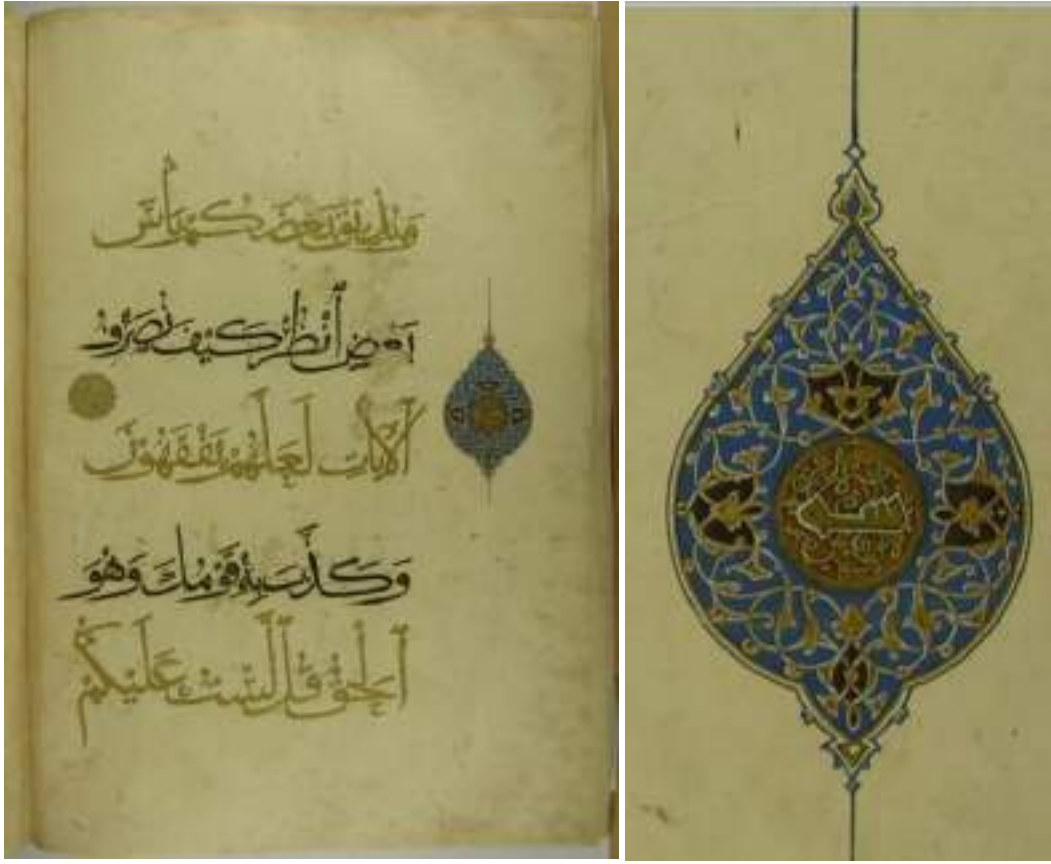 وَيُذِيقَ بَعْضَكُمْ بَأْسَ
بَعْضٍ ٱنْظُرْ كَيْفَ نُصَرِّفُ
ٱلْآيَاتِ لَعَلَّهُمْ يَفْقَهُونَ
وَكَذَّبَ بِهِ قَوْمُكَ وَهُوَ
ٱلْحَقُّ قُلْ لَسْتُ عَلَيْكُمْ